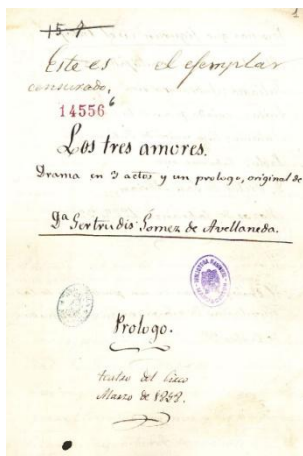 1
15-7
Este es el ejemplar
censurado,
14556 6
Los tres amores.
Drama en 3 actos y un prologo, original de
Dª Gertrudis Gomez de Avellaneda.
Prologo.
teatro del Circo
Marzo de 1858.